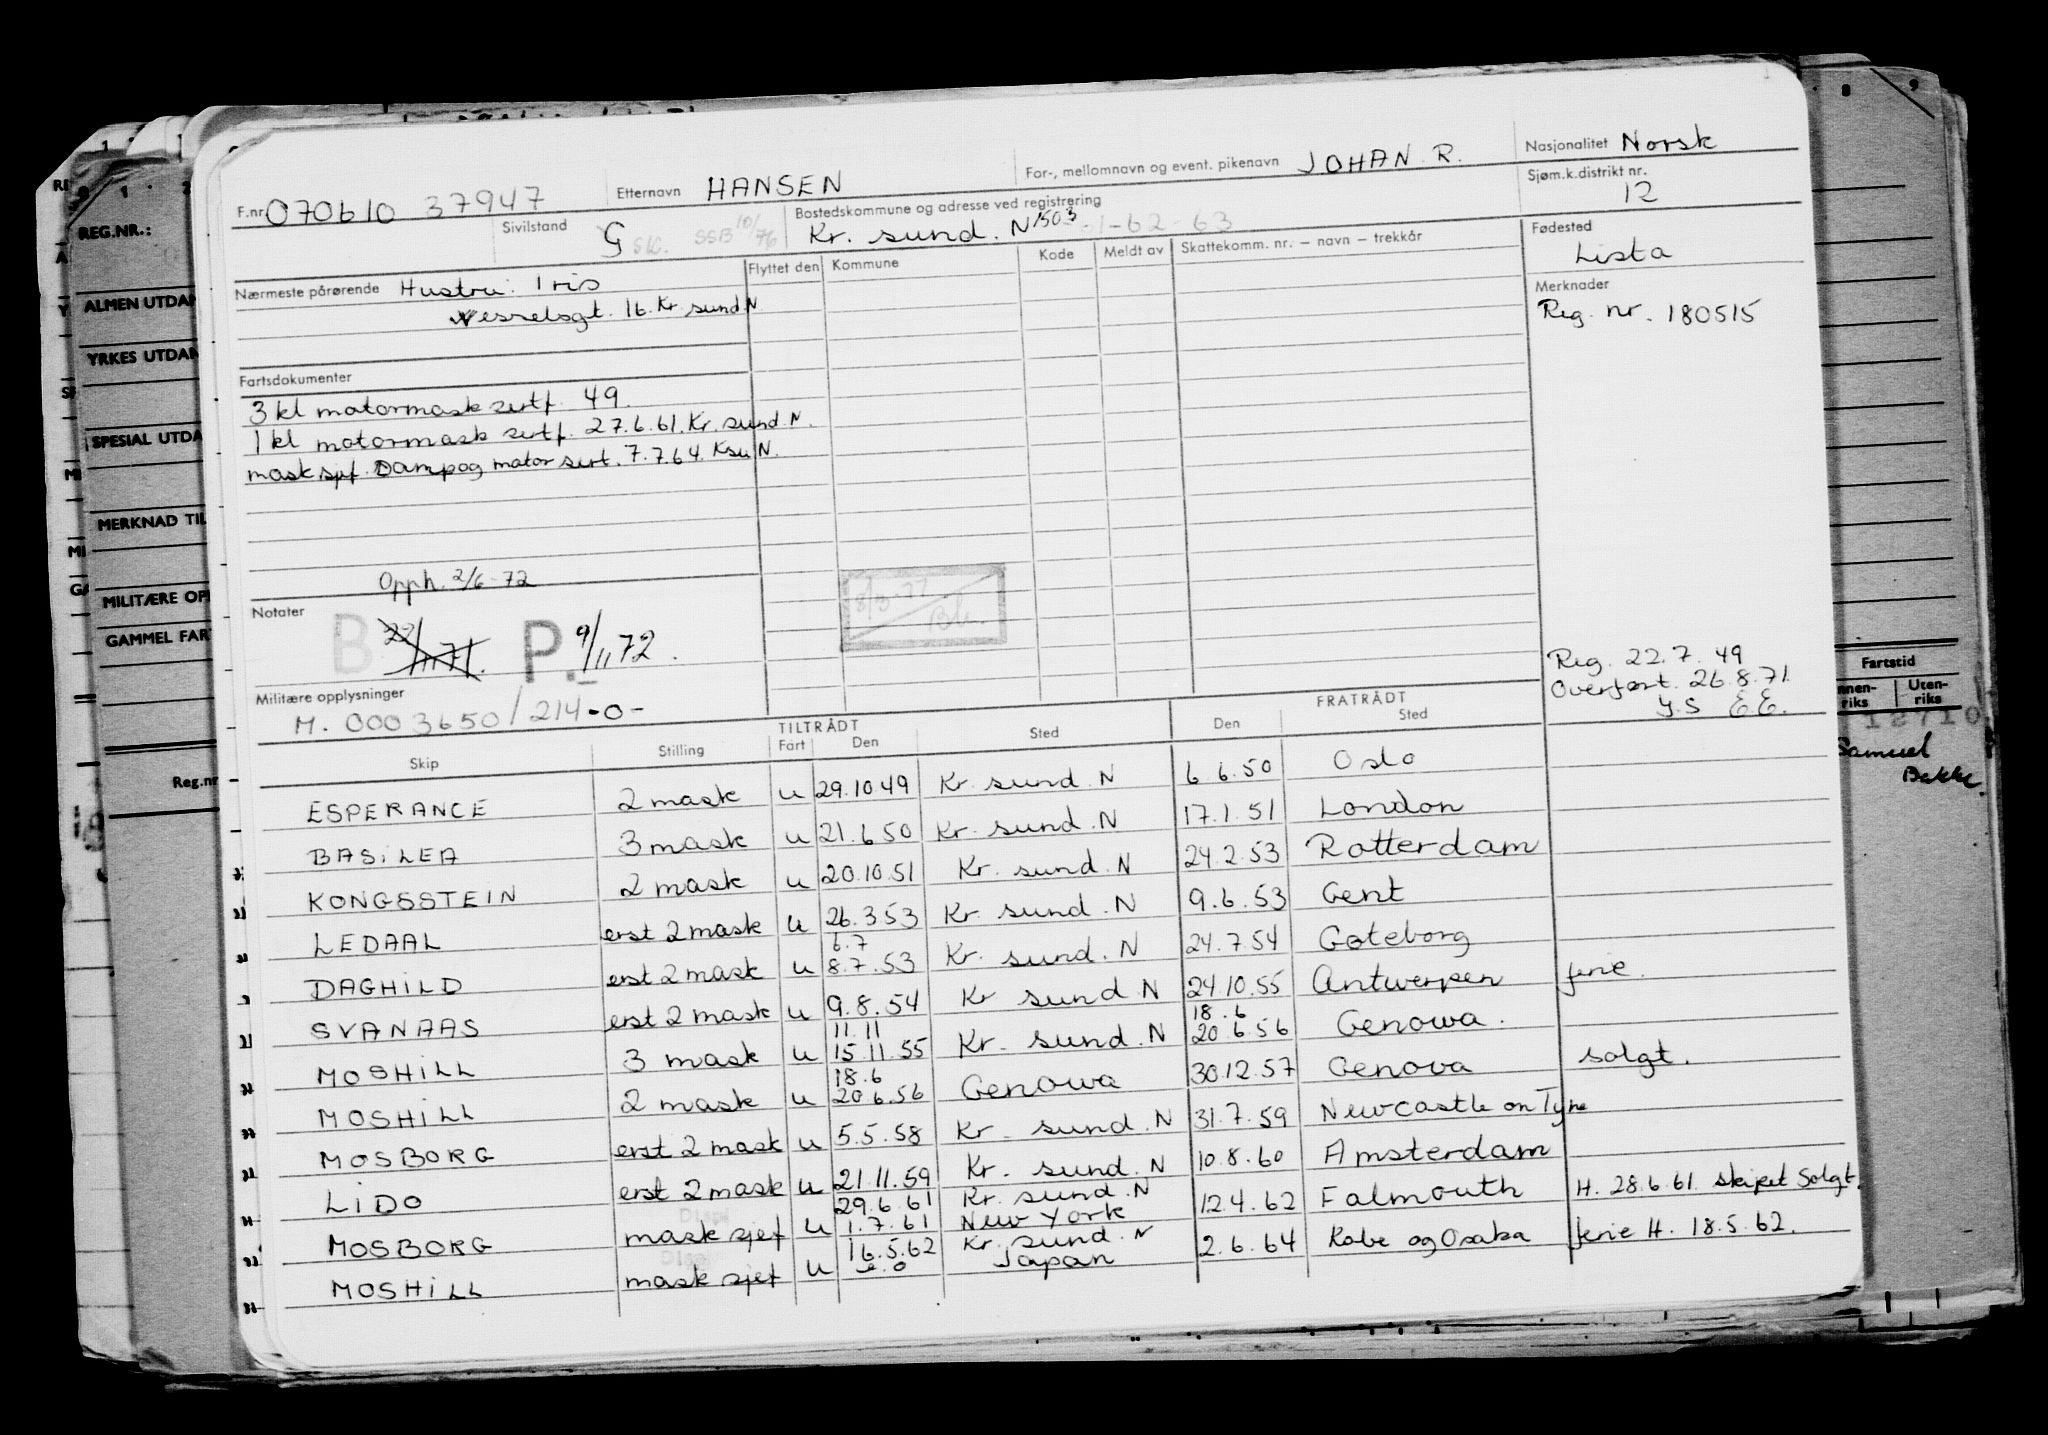 F.nr. 070610 37947 Etternavn HANSEN For-, mellomnavn og event. pikenavn JOHAN R. Nasjonalitet Norsk
Sivilstand G Bostedskommune og adresse ved registrering Kr. sund. N 1503 -1-62-63 Sjøm.k.distrikt nr. 12
SSB 10/76
Nærmeste pårørende Hustru: Iris Flyttet den Kommune Kode Meldt av Skattekomm. nr. – navn – trekkår Fødested Lista
Wesselsgt. 16. Kr. sund. N
Merknader
Reg. nr. 180515
Fartsdokumenter
3 kl motormask sertf. 49.
1 kl motormask sertf. 27.6.61. Kr. sund. N.
mask.sjef. Damp og motor sert. 7.7.64. Ksu N.
Opph. 2/6-72
Notater B 22/11 71. P. 9/11 72.
8/3-77
Reg. 22.7.49
Overført. 26.8.71.
Y.S E.E.
Militære opplysninger
M. 0003650/214-0-
TILTRÅDT FRATRÅDT
Skip Stilling Fart Den Sted Den Sted
ESPERANCE 2 mask u 29.10.49 Kr. sund. N 6.6.50 Oslo
BASILEA 3 mask u 21.6.50 Kr. sund. N 17.1.51 London
KONGSSTEIN 2 mask u 20.10.51 Kr. sund. N 24.2.53 Rotterdam
LEDAAL erst 2 mask u 26.3.53 Kr. sund. N 9.6.53 Gent
DAGHILD erst 2 mask u 6.7 8.7.53 Kr. sund. N 24.7.54 Gøteborg
SVANAAS erst 2 mask u 9.8.54 Kr sund N 24.10.55 Antwerpen ferie.
MOSHILL 3 mask u 11.11 15.11.55 Kr. sund. N 18.6 20.6.56 Genowa.
MOSHILL 2 mask u 18.6 20.6.56 Genowa 30.12.57 Genova solgt.
MOSBORG erst 2 mask u 5.5.58 Kr. sund. N 31.7.59 Newcastle on Tyne
LIDO erst 2 mask u 21.11.59 Kr. sund. N 10.8.60 Amsterdam
MOSBORG mask sjef u 29.6.61 1.7.61 Kr. sund. N New York 12.4.62 Falmouth H. 28.6.61. skipet solgt.
MOSHILL mask sjef u 16.5.62 Kr. sund. N Japan 2.6.64 Kobe og Osaka ferie H. 18.5.62.
REG.NR.:
ALMEN UTDAN
YRKES UTDAN
SPESIAL UTDA
MERKNAD TIL
MILITÆRE OPP
GAMMEL FAR
Reg.nr
8 9
Fartstid
nnen-riks Uten-riks
Samuel
Bakke.